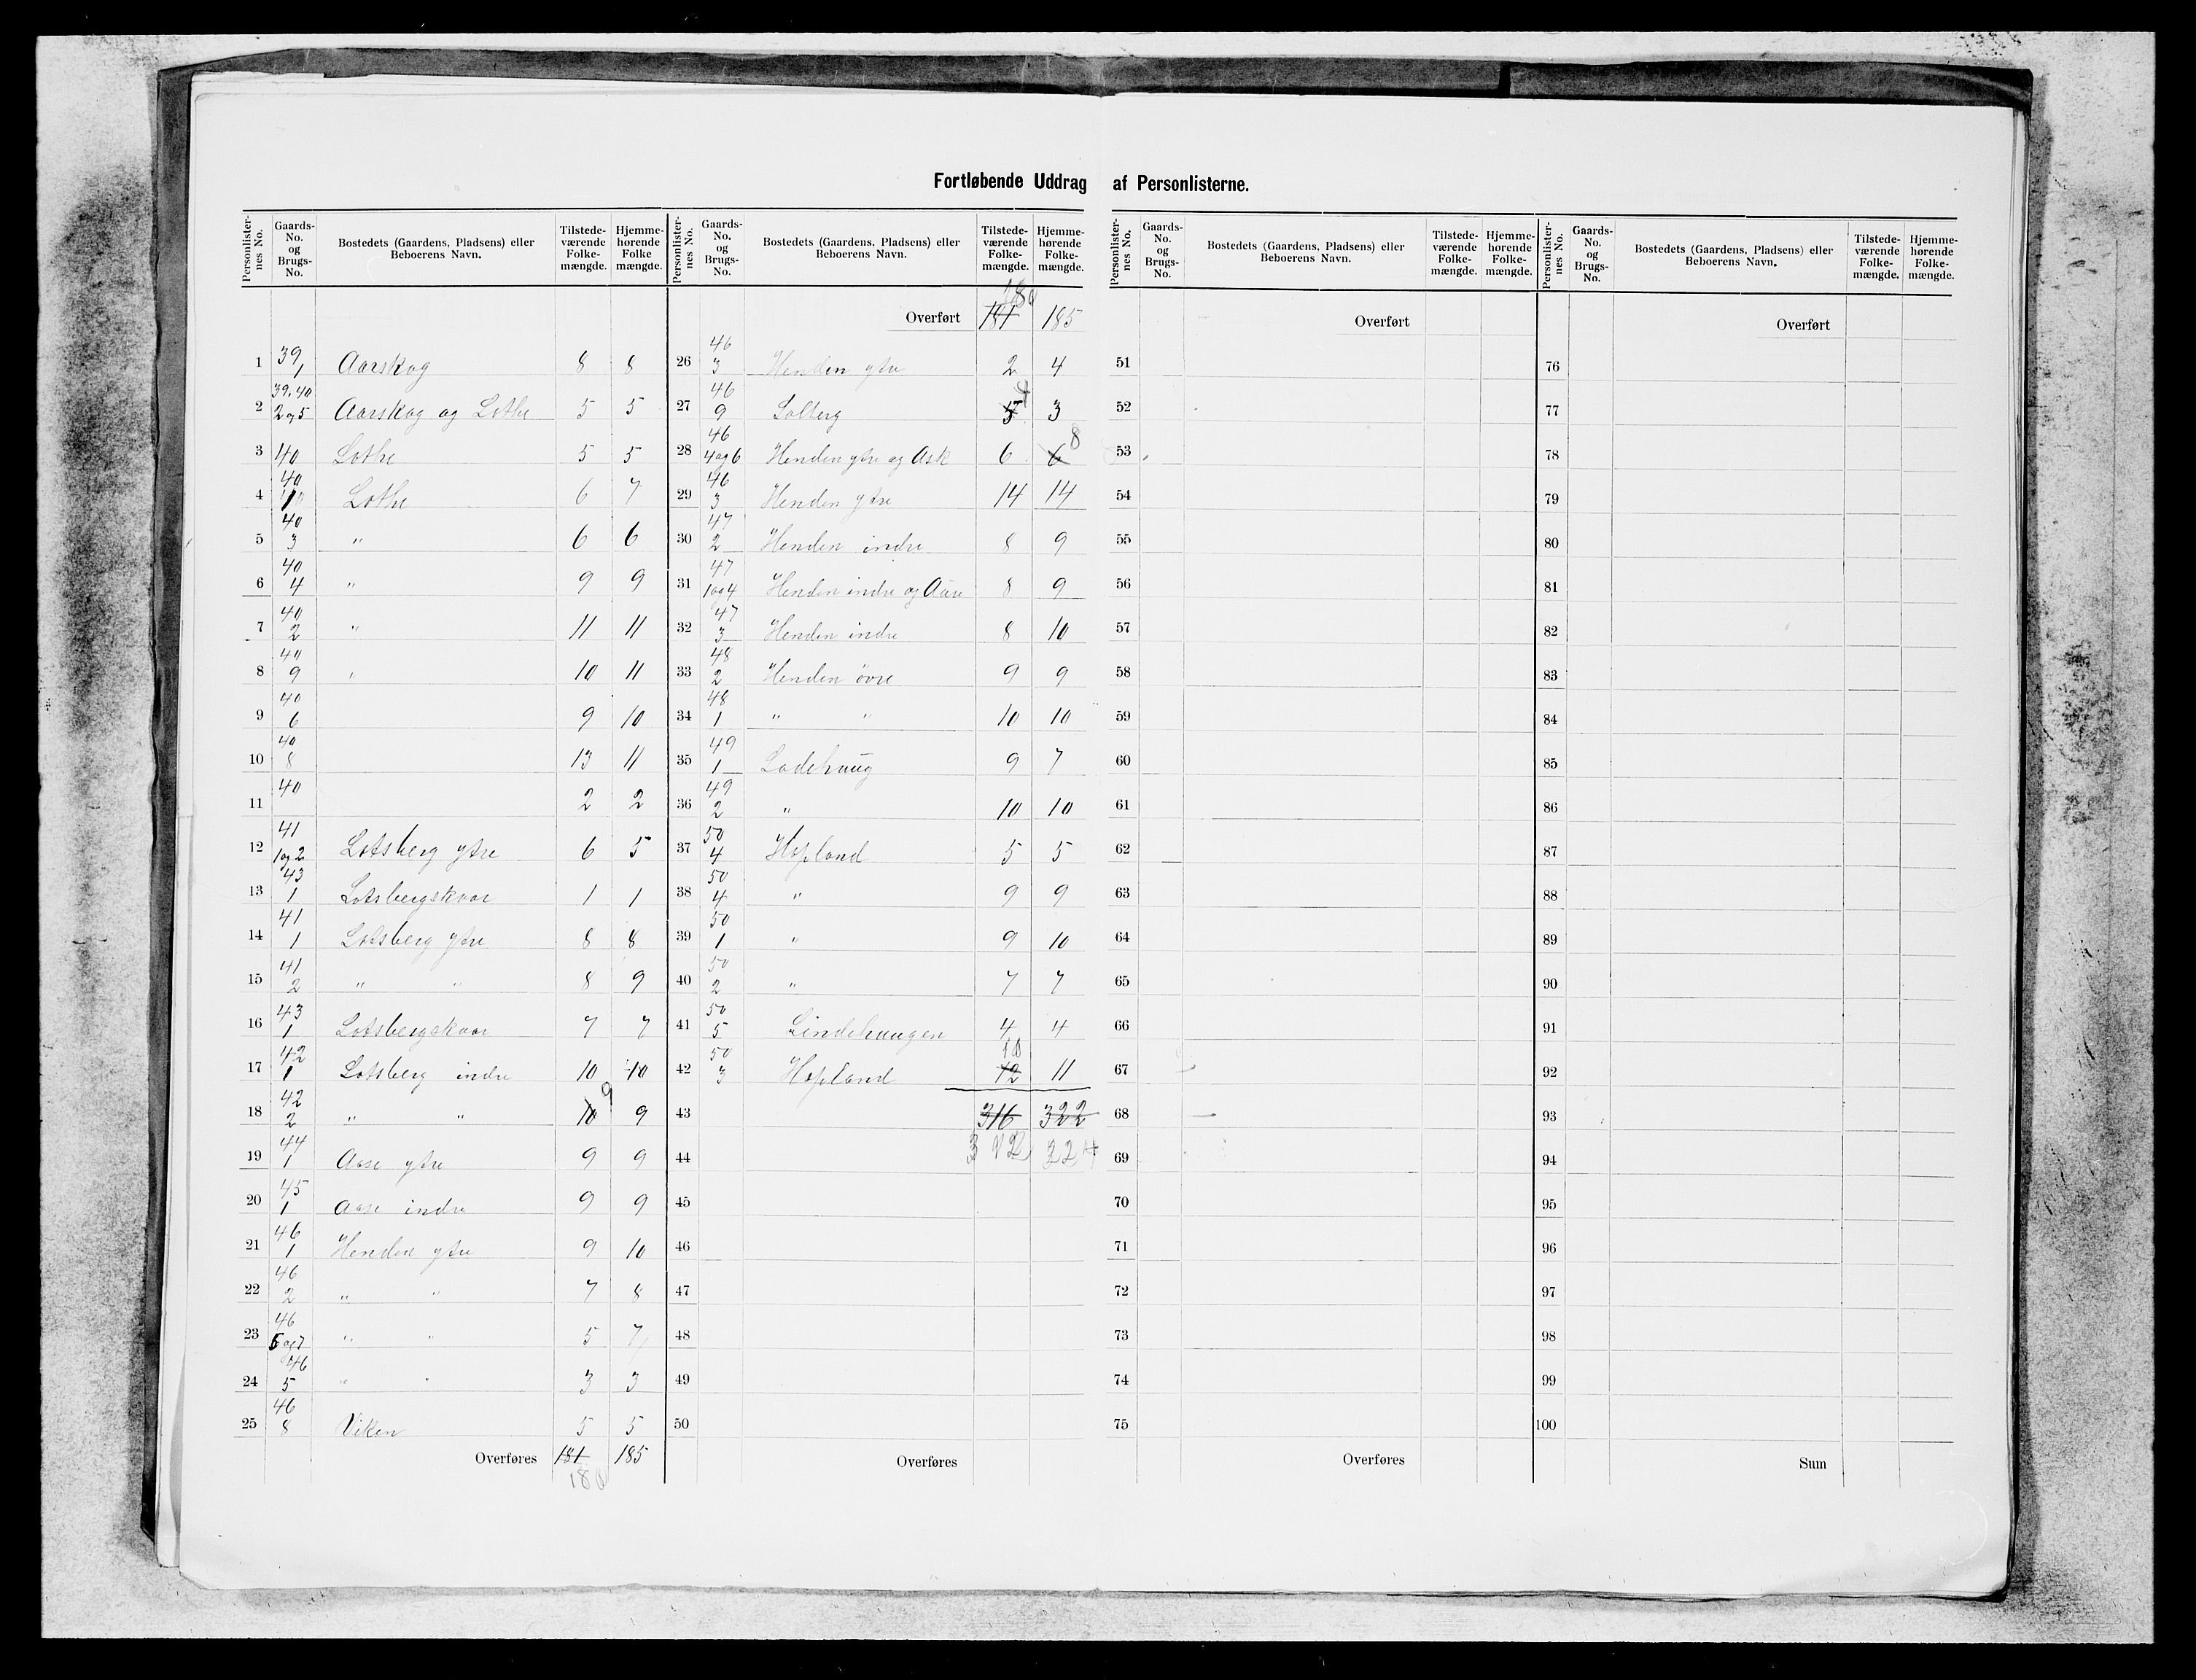 Fortløbende Uddrag af Personlisterne.
Personlister-nes No. Gaards-No. og Brugs-No. Bostedets (Gaardens, Pladsens) eller Beboerens Navn. Tilstede-værende Folke-mængde. Hjemme-hørende Folke mængde.
1 39/1 Aarskog 8 8
2 39.40 2og5 Aarskog og Lothe 5 5
3 40 Lothe 5 5
4 40 Lothe 6 7
5 40/3 " 6 6
6 40/4 " 9 9
7 40/2 " 11 11
8 40/9 " 10 11
9 40/6 9 10
10 40/8 13 11
11 40 2 2
12 41 1og2 Lotsberg ytre 6 5
13 43/1 Lotsbergskaar 1 1
14 41/1 Lotsberg ytre 8 8
15 41/2 " " 8 9
16 43/1 Lotsbergskaar 7 7
17 42/1 Lotsberg indre 10 10
18 42/2 " " 10 9 9
19 44/1 Aase ytre 9 9
20 45/1 Aase indre 9 9
21 46/1 Henden ytre 9 10
22 46/2 " " 7 8
23 46 6og7 " " 5 7
24 46/5 " " 3 3
25 46/8 Viken 5 5
Overføres 181 185
180
Personlister-nes No. Gaards-No. og Brugs-No. Bostedets (Gaardens, Pladsens) eller Beboerens Navn. Tilstede-værende Folke-mængde. Hjemme-hørende Folke-mængde.
180
Overført 181 185
26 46/3 Henden ytre 2 4
27 46/9 Solberg 5 4 3
28 46 4og6 Henden ytre og Ask 6 6 8
29 46/3 Henden ytre 14 14
30 47/2 Henden indre 8 9
31 47 1og4 Henden indre og Aase 8 9
32 47/3 Henden indre 8 10
33 48/2 Henden övre 9 9
34 48/1 " " 10 10
35 49/1 Ladehaug 9 7
36 49/2 " 10 10
37 50/4 Hopland 5 5
38 50/4 " 9 9
39 50/1 " 9 10
40 50/2 " 7 7
41 50/5 Lindehaugen 4 4
42 50/3 Hopland 12 10 11
43 316 322
44 312 324
45
46
47
48
49
50
Overføres
Personlister-nes No. Gaards-No. og Brugs-No. Bostedets (Gaardens, Pladsens) eller Beboerens Navn. Tilstede-værende Folke-mængde. Hjemme-hørende Folke-mængde.
Overført
51
52
53
54
55
56
57
58
59
60
61
62
63
64
65
66
67
68
69
70
71
72
73
74
75
Overføres
Personlister-nes No. Gaards-No. og Brugs-No. Bostedets (Gaardens, Pladsens) eller Beboerens Navn. Tilstede-værende Folke-mængde. Hjemme-hørende Folke-mængde.
Overført
76
77
78
79
80
81
82
83
84
85
86
87
88
89
90
91
92
93
94
95
96
97
98
99
100
Sum